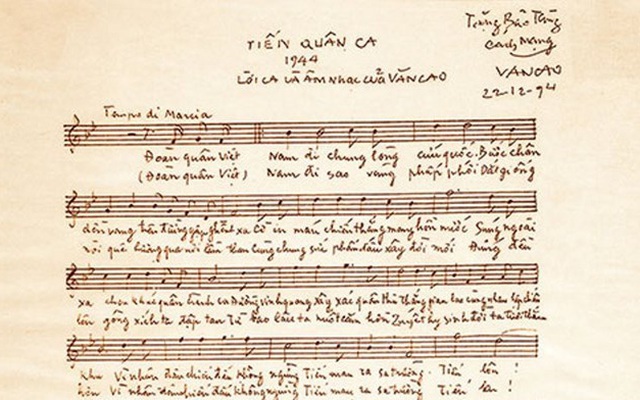 Tặng Bảo Tàng
Cách Mạng
VANCAO
22-12-94
TIẾN QUÂN CA
1944
LỜI CA VÀ ÂM NHẠC CỦA VĂN CAO
Tempo di Marcia
Đoàn quân Việt Nam đi chung lòng cứu quốc. Bước chân
(Đoàn quân Việt) Nam đi sao vàng phấp phới Dắt giống
dồn vang trên đường gập ghềnh xa Cờ in máu chiến thắng mang hồn nước Súng ngoài
nòi quê hương qua nơi lầm than Cùng chung sức phấn đấu xây đời mới Đứng đều
xa chen khúc quân hành ca Đường vinh quang xây xác quân thù Thắng gian lao cùng nhau lập chiến
lên gông xích ta đập tan Từ bao lâu ta nuốt căm hờn Quyết hy sinh đời ta tươi thắm
khu Vì nhân dân chiến đấu không ngừng Tiến mau ra sa trường. Tiến lên !
hơn Vì nhân dân chiến đấu không ngừng Tiến mau ra sa trường Tiến lên !